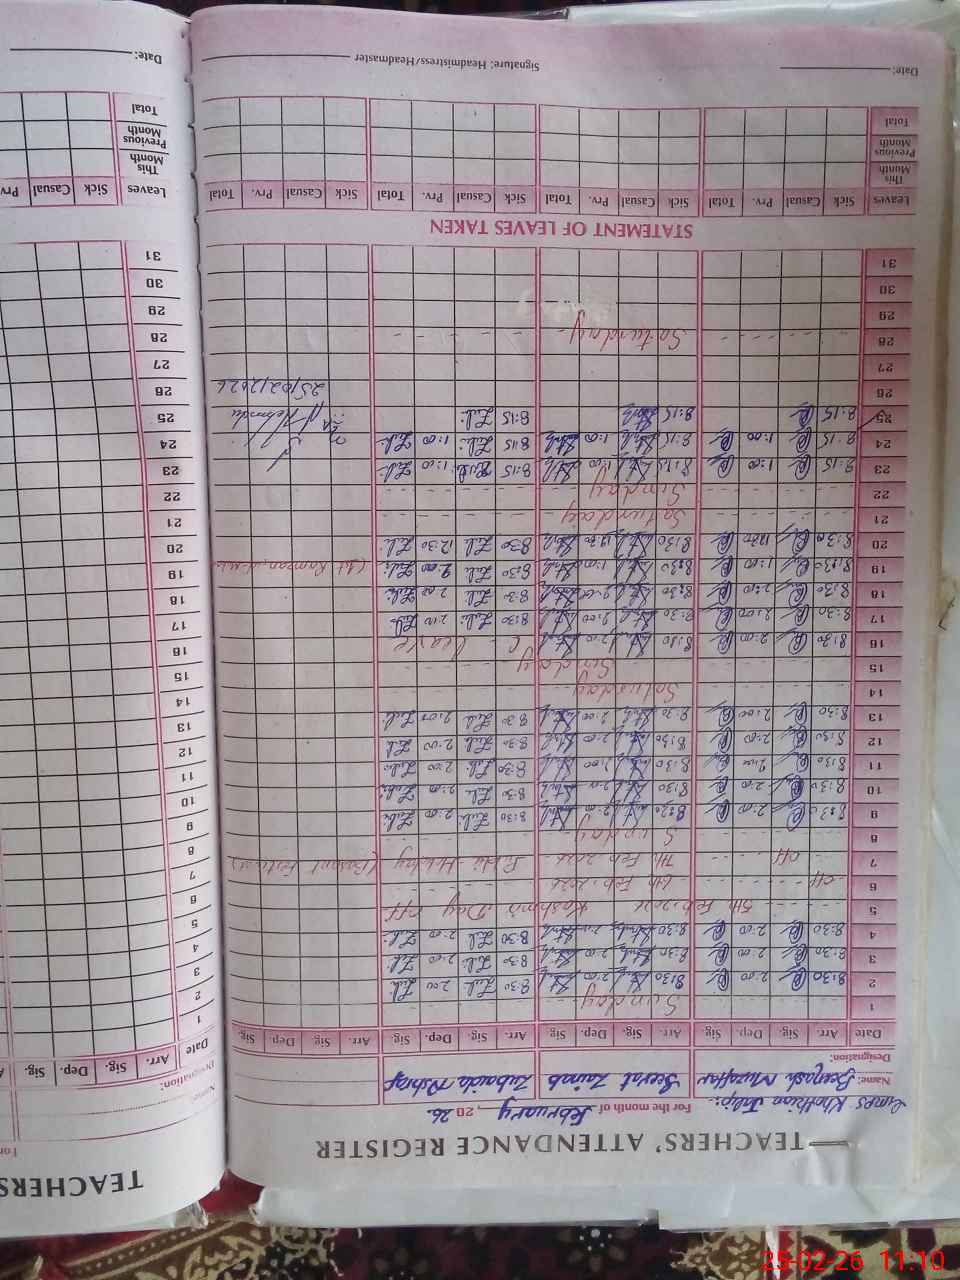 TEACHERS' ATTENDANCE REGISTER
For the month of February, 2026
Name: Beenash Muzaffar Seerat Zainab Zubaida Ashraf
Designation:
Date Arr. Sig. Dep. Sig. Arr. Sig. Dep. Sig. Arr. Sig. Dep. Sig. Arr. Sig. Dep. Sig.
1 Sunday
2 8:30 2:00 8:30 2:00 8:30 2:00
3 8:30 2:00 8:30 2:00 8:30 2:00
4 8:30 2:00 8:30 2:00 8:30 2:00
5 5th Feb. 2026 Kashmir Day off
6 off 6th Feb. 2026
7 off 7th Feb 2026 Public Holiday (Basant Festival)
8 Sunday
9 8:30 2:00 8:30 2:00 8:30 2:00
10 8:30 2:00 8:30 2:00 8:30 2:00
11 8:30 2:00 8:30 2:00 8:30 2:00
12 8:30 2:00 8:30 2:00 8:30 2:00
13 8:30 2:00 8:30 2:00 8:30 2:00
14 Saturday
15 Sunday
16 8:30 2:00 8:30 2:00 C leave
17 8:30 2:00 8:30 2:00 8:30 2:00
18 8:30 2:00 8:30 2:00 8:30 2:00
19 8:30 1:00 8:30 1:00 8:30 (1st Ramzan
20 8:30 12:30 8:30 12:30 8:30 12:30
21 Saturday
22 Sunday
23 8:15 1:00 8:15 1:00 8:15 1:00
24 8:15 1:00 8:15 1:00 8:15 1:00
25 8:15 8:15 8:15
26 25/02/2026
27
28 Saturday
29
30
31
STATEMENT OF LEAVES TAKEN
Leaves Sick Casual Prv. Total Sick Casual Prv. Total Sick Casual Prv. Total Sick Casual Prv. Total
This Month
Previous Month
Total
Date: Signature: Headmistress/Headmaster
TEACHERS
For
Name:
Designation:
Date Arr. Sig. Dep. Sig. A
1
2
3
4
5
6
7
8
9
10
11
12
13
14
15
16
17
18
19
20
21
22
23
24
25
26
27
28
29
30
31
Leaves Sick Casual Prv
This Month
Previous Month
Total
Date:
25-02-26 11:10